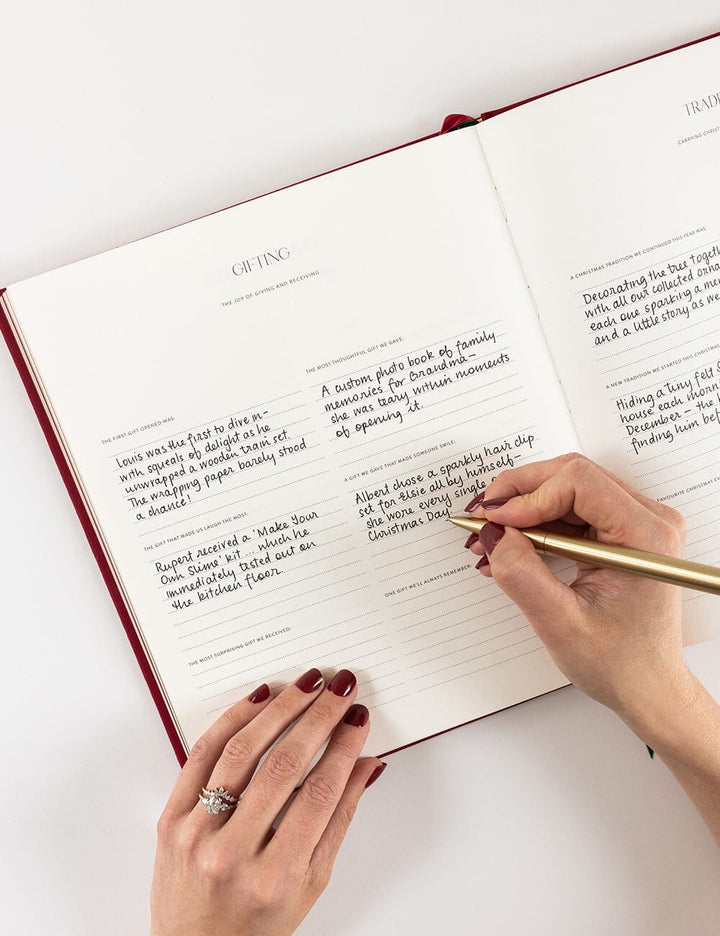 GIFTING
THE JOY OF GIVING AND RECEIVING
THE FIRST GIFT OPENED WAS:
Louis was the first to dive in–
with squeals of delight as he
unwrapped a wooden train set.
The wrapping paper barely stood
a chance!
THE GIFT THAT MADE US LAUGH THE MOST:
Rupert received a 'Make Your
Own Slime' kit... which he
immediately tested out on
the kitchen floor
THE MOST SURPRISING GIFT WE RECEIVED:
THE MOST THOUGHTFUL GIFT WE GAVE:
A custom photo book of family
memories for Grandma–
she was teary within moments
of opening it.
A GIFT WE GAVE THAT MADE SOMEONE SMILE:
Albert chose a sparkly hair clip
set for Elsie all by himself–
she wore every single
Christmas Day
ONE GIFT WE'LL ALWAYS REMEMBER:
TRADI
CARRYING CHRIST
A CHRISTMAS TRADITION WE CONTINUED THIS YEAR WAS:
Decorating the tree togeth
with all our collected orna
each one sparking a mem
and a little story as we
A NEW TRADITION WE STARTED THIS CHRISTMAS
Hiding a tiny felt
house each morn
December – the
finding him bef
FAVOURITE CHRISTMAS EV